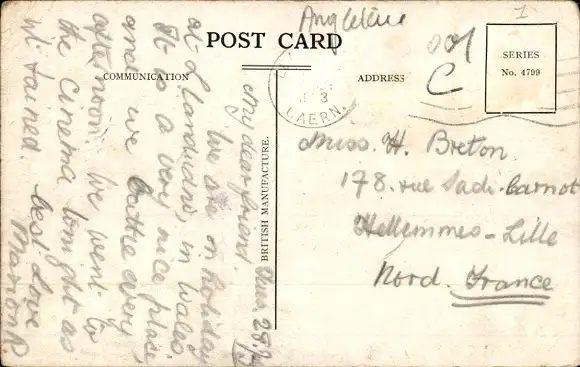 Angleterre
1
POST CARD
COMMUNICATION
ADDRESS
SERIES
No. 4799
BRITISH MANUFACTURE.
CAERN.
My dear friend.
We are on holiday
at Llandudno, in Wales
It is a very nice place,
and we bathe every
afternoon. We went to
the cinema tonight as
it rained. best love
Marion R
Miss. H. Breton.
178. rue Sadi-Carnot
Hellemmes-Lille
Nord. France